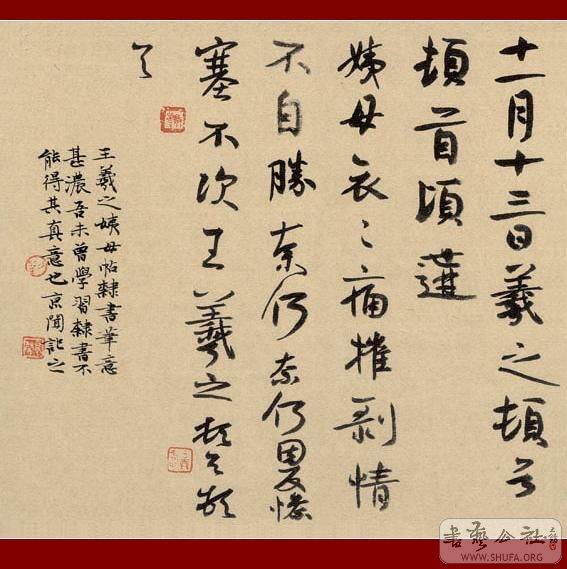 十一月十三日羲之頓首
頓首頃遘
姨母哀〻痛摧剥情
不自勝奈何奈何因反慘
塞不次王羲之頓首頓
首
王羲之姨母帖隸書筆意
甚濃吾未曾學習隸書不
能得其真意也京聞記之
書藝公社
WWW.SHUFA.ORG